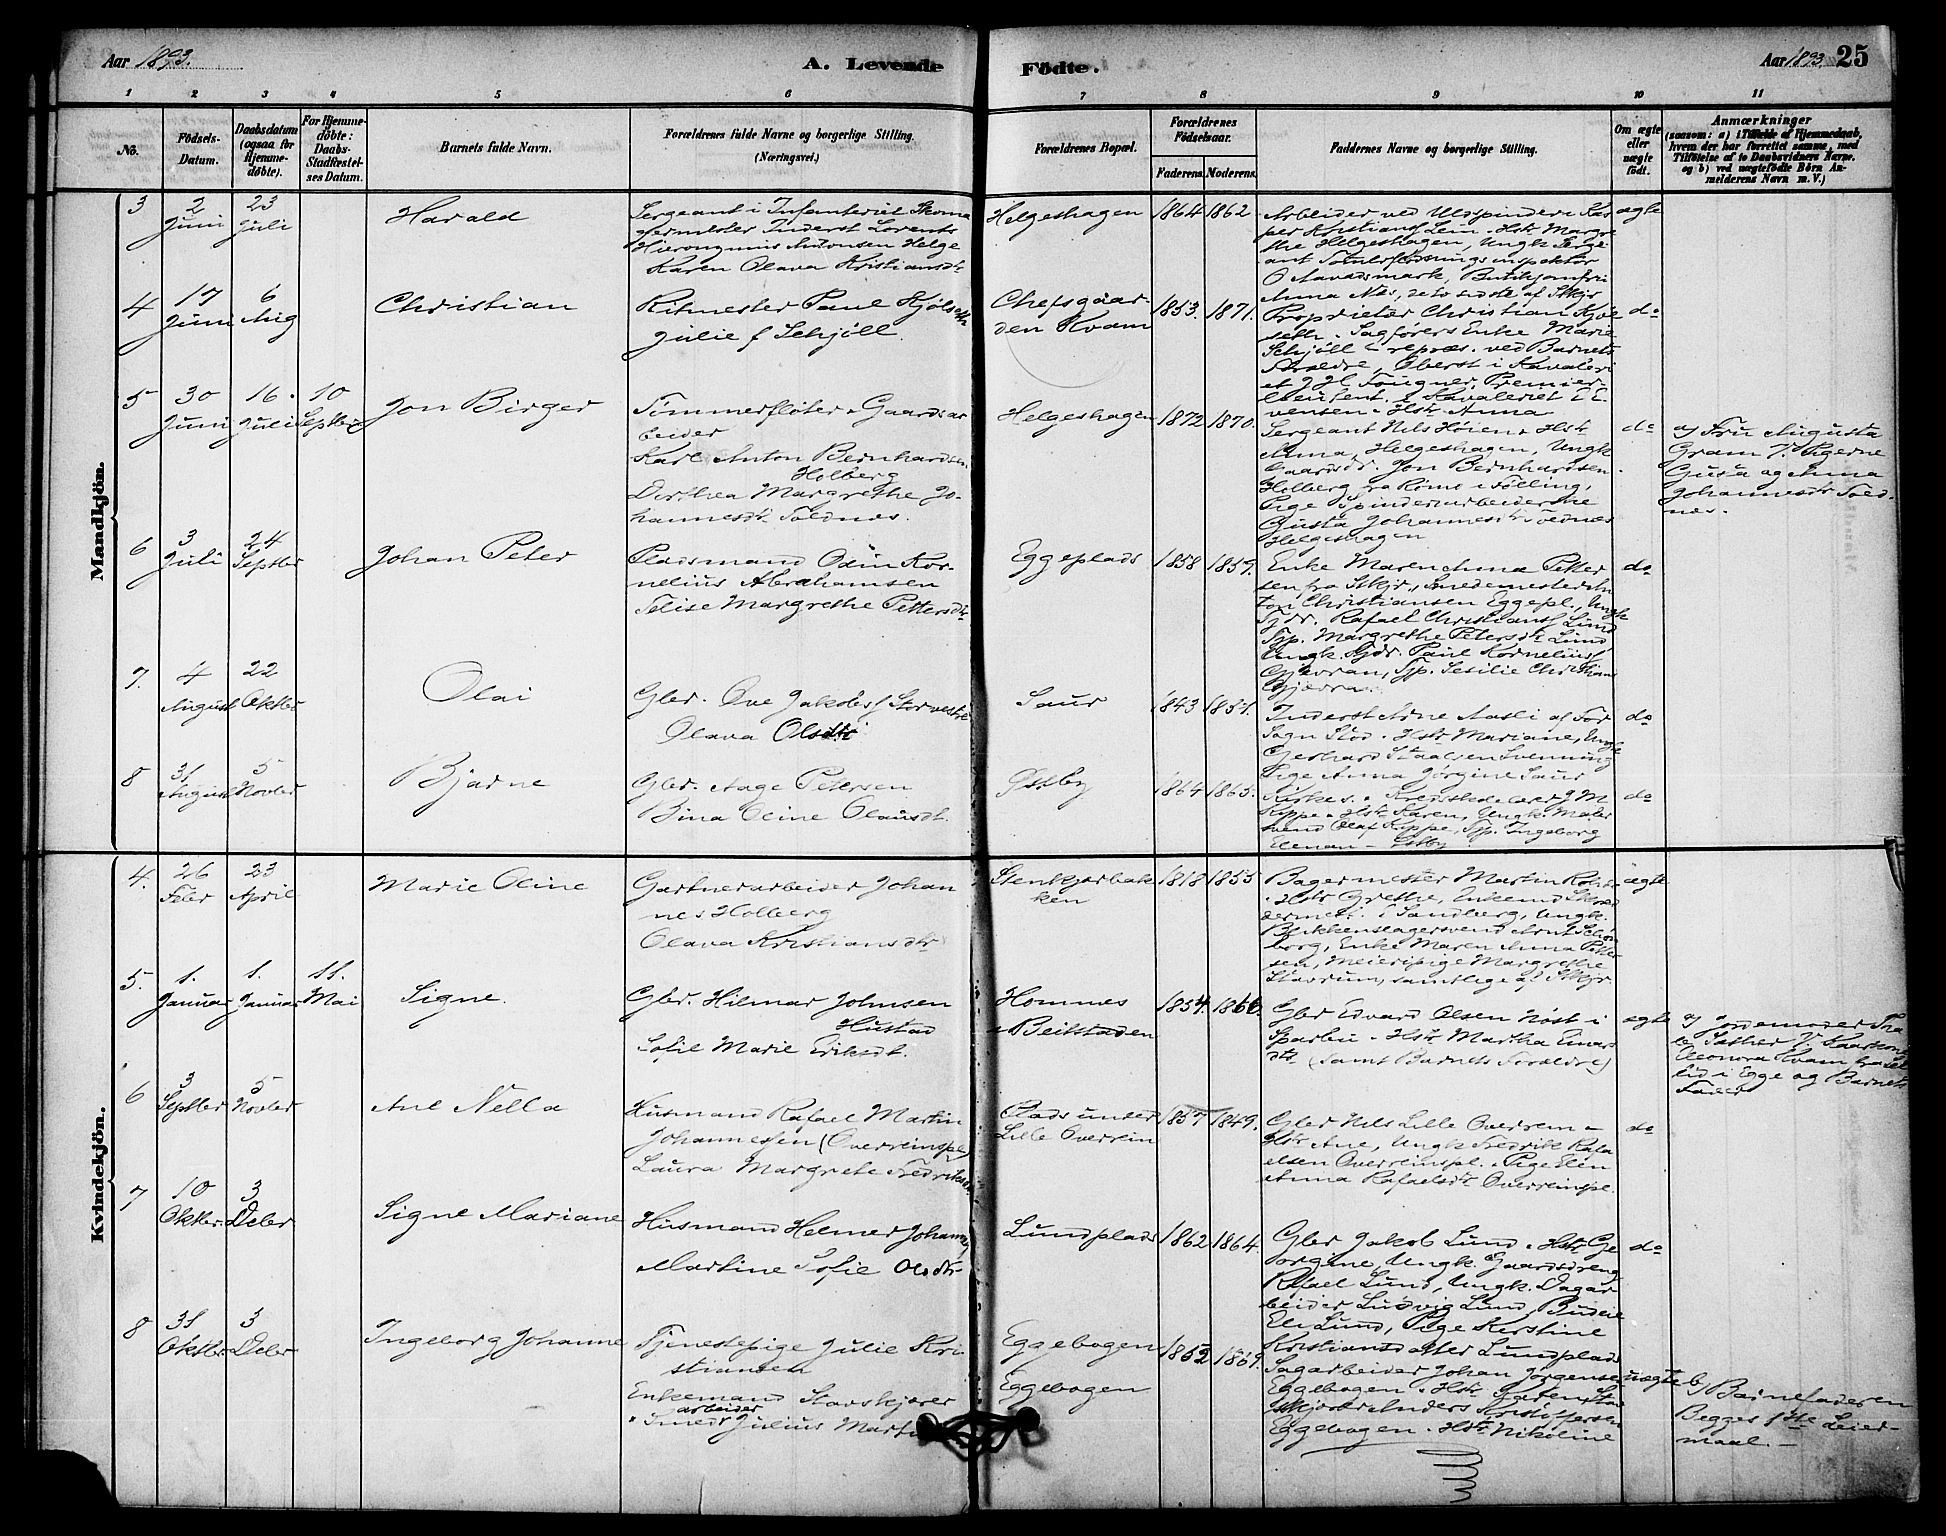 Aar 1893.
A. Levende
Födte.
Aar 1893. 25
1 2 3 4 5 6 7 8 9 10 11
No.
Födsels-Datum.
Daabsdatum (ogsaa for Hjemme-døbte).
For Hjemme-døbte: Daabs-Stadfæstel-ses Datum.
Barnets fulde Navn.
Forældrenes fulde Navne og borgerlige Stilling. (Næringsvei.)
Forældrenes Bopæl.
Forældrenes Födselsaar.
Faderens. Moderens.
Faddernes Navne og borgerlige Stilling.
Om ægte eller uægte födt.
Anmærkninger
(saasom: a) i Tilfælde af Hjemmedaab,
hvem der har forrettet samme, med
Tilföielse af to Daabsvidners Navne,
og b) ved uægtefödte Börn An-
melderens Navn m. V.)
Mandkjön.
3
2 Juni
23 Juli
Harald
Sergeant i Infanteriet Skoma
germester Inderst Lorents
Hieronymus Antonsen Helge
Karen Olava Kristiansdtr
Helgeshagen
1864 1862
Arbeider ved Uldspinderi Kas
per Kristians Lein Hstr Margre
the Helgeshagen, Ungk Serge
ant
O Aavadsmark, Butikjomfru
Anna Næs, de to sidste af Stkjr
ægte
4
17 Juni
6 Aug
Christian
Ritmester Paul Kjölseth
Julie f Schjöll.
Chefsgaar-
den Kvam
1853. 1871.
Proprietær Christian Kjöl
seth. Sagförers Enke Marie
Schjöll repræs. ved Barnets
Forældre, Oberst i Kavaleri
et J Hl Fougner, Premier-
löitent. i Kavaleriet E E
vensen Hstr Anna
do
5
30 Juni
16. Juli
10 Septbr
Jon Birger
Tömmerflöter Gaardsar
beider
Karl Anton Bernhardsen
Holberg
Dorthea Margrethe Jo-
hannesdtr Foldnæs.
Helgeshagen
1872 1870.
Sergeant Nils Höien Hstr
Anna, Helgeshagen, Ungk
Gaardsdr. Jon Bernhardsen
Holberg fra Römo i Fölling,
Pige Spinderiarbeiderske
Gusta Johannesdtr Foldnæs
Helgeshagen
do
a) Fru Augusta
Gram V. Pigerne
Gusta og Anna
Johannesdtr Fold-
næs.
6
3 Juli
24 Septbr
Johan Peter
Pladsmand Odin Kor-
nelius Abrahamsen
Felise Margrethe Pettersdtr
Eggeplads
1858 1859.
Enke Maren Anna Petter
sen fra Stkjr, Smedemester An
ton Christiansen Eggepl., Ungk
Tjdr. Rafael Christians Lund
Tjp. Margrethe Petersdtr Lund
Ungk. Tjdr. Paul Kornelius
Gjævran, Tjp. Sesilie Christians
Gjævran.
do
7.
4 August
22 Oktbr
Olai
Gbr. Ove Jakobs Storvestre
Olava Olsdtr
Saur
1843 1857.
Inderst Arne Aasli af For
Sogn Stod. Hstr Mariane, Ungk
Gerhard Staalsen Svenning
Pige Anna Jörgine Saur
do
8
31 August
5 Novbr
Bjarne
Gbr. Aage Petersen
Bina Oline Olausdt.
Østby
1864 1865.
Kirkes. Kredsskolelær J M
Kippe Hstr Karen, Ungk. Maler
svend Olaf Kippe, Tjp. Ingeborg
Østby
do
Kvindekjön.
4.
26 Febr
23 April
Marie Oline
Gartnerarbeider Johan
nes Holberg
Olava Kristiansdtr
Stenkjærbak
ken
1818 1855
Bagermester Martin
Hstr Grethe, Enkemd Skræd
dermest. Sandberg, Ungk.
Blikkenslagersvend
borg, Enke Maren Anna Petter
sen, Meieripige Margrethe
Stavrum, samtlege af Stkjr.
ægte
5.
1. Januar
1. Januar
11. Mai
Signe.
Gbr. Hilmar Johnsen
Hustad
Sofie Marie Eriksdt.
Hommes
Beitstaden
1854. 1866.
Gbr Edvard Olsen Nöst i
Sparbu Hstr Martha Einars
dtr (samt Barnets Forældre)
ægte
a) Jordemoder
Eleonora Kvam fra
lid i Egge og Barnets
Fader
6
3 Septbr
5 Novbr
Ane Nella
Husmand Rafael Martin
Johannessen (Overreinspl)
Laura Margrete Fredriksd
Plads under
Lille Overrein
1857 1849.
Gbr Nils Lille Overrein
Hstr Ane, Ungk Fredrik Rafa
elsen Overreinspl. Pige Elen
Anna Rafaelsdtr Overreinspl.
do
7
10 Oktbr.
3 Debr
Signe Mariane
Husmand Helmer Johannes
Martine Sofie Olsdtr
Lundplads
1862 1864.
Gbr Jakob Lund Hstr Ge
orgine, Ungk. Gaardsdreng
Rafael Lund, Ungk. Dagar
beider Ludvig Lund, Budeie
Eli Lund, Pige Kirstine
Kristiansdatter Lundplads
do
8
31 Oktbr.
3 Debr
Ingeborg Johanne
Tjenestepige Julie Kri
stiansen
Enkemand Stavskjærer
arbeider
Smed Julius Mart
Eggebogen
Eggebogen
1852 1869.
Sagarbeider Johan Jörgensen
Eggebogen Hstr Karen, Stav
skjærer Anders Kristoffersen
Eggebogen Hstr Nikoline
uægte
b) Barnefaderen
Begges 1ste Leier-
maal.